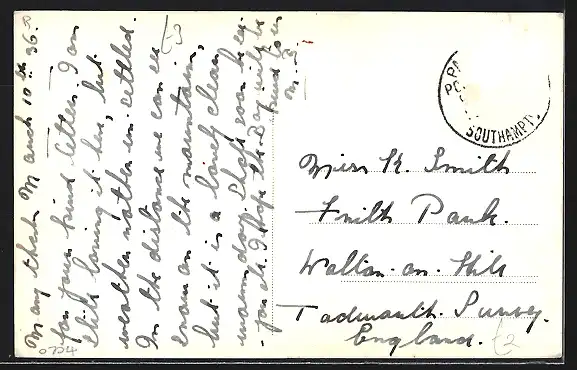 March 10th. 36.
Many thanks
for your kind letter. I am
still loving it here, but
weather rather un-settled.
In the distance we can see
snow on the mountains,
but it is a lovely clear
warm day. Shall soon be
I hope the Day will be
kind to us
PO
SOUTHAMPT
Miss K. Smith
Frith Park.
Walton-on-Hill
Tadworth. Surrey.
England.
0724
£2
£3